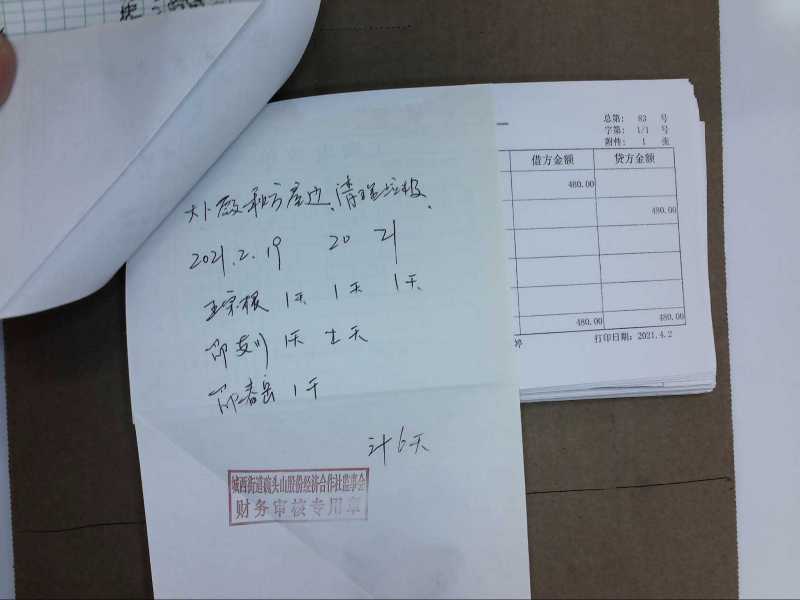 2021.2.19 20 21
王宗根 1天 1天 1天
邵友川 1天 土天
邵春岳 1天
计6天
城西街道 头山股份经济合作社监事会
财务审核专用章
总第: 83 号
字第: 1/1 号
附件: 1 张
借方金额 贷方金额
480.00
480.00
480.00 480.00
打印日期: 2021.4.2